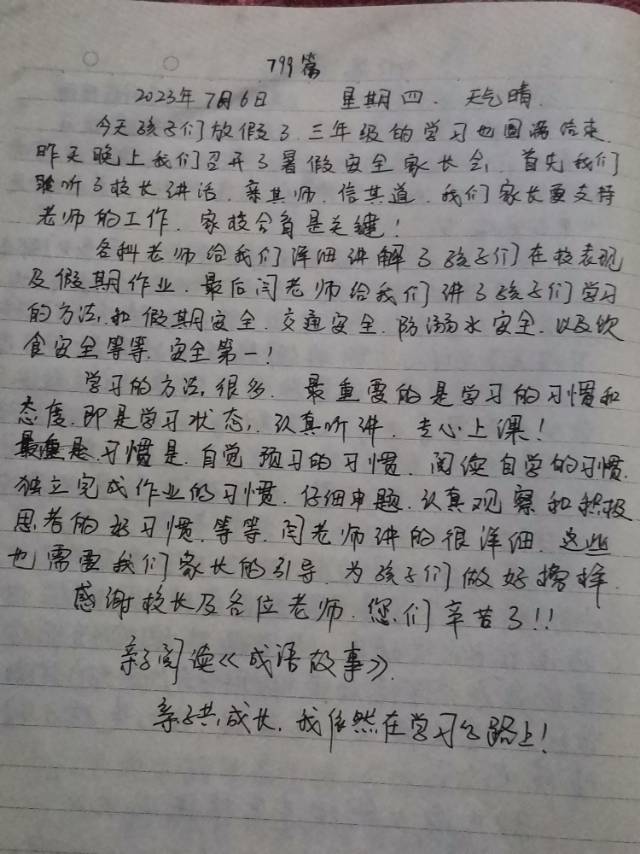 799篇
2023年7月6日 星期四. 天气晴.
今天孩子们放假了.三年级的学习也圆满结束.
昨天晚上我们召开了暑假安全家长会,首先我们
聆听了校长讲话.亲其师.信其道.我们家长要支持
老师的工作.家校合育是关键!
各科老师给我们详细讲解了孩子们在校表现
及假期作业.最后闫老师给我们讲了孩子们学习
的方法,和假期安全.交通安全.防溺水安全.以及饮
食安全等等.安全第一!
学习的方法,很多.最重要的是学习的习惯和
态度.即是学习状态,.认真听讲.专心上课!
习惯是.自觉预习的习惯.阅读自学的习惯.
独立完成作业的习惯.仔细审题.认真观察和积极
思考的好习惯.等等.闫老师讲的很详细.这些
也需要我们家长的引导.为孩子们做好榜样.
感谢校长及各位老师.您们辛苦了!!
亲子阅读《成语故事》.
亲子共成长.我依然在学习的路上!